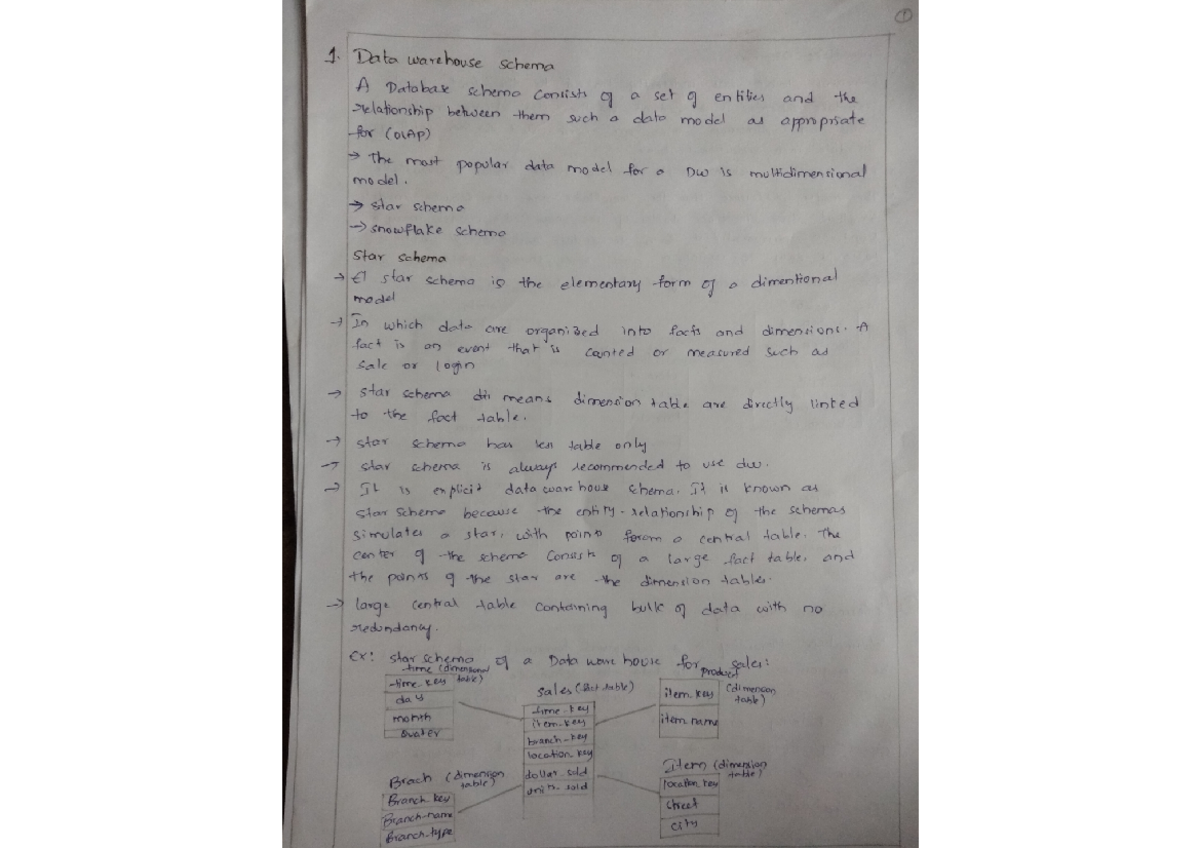 1
1. Data warehouse schema
A Database schema consists of a set of entities and the
relationship between them such a data model as appropriate
for (OLAP)
→ the most popular data model for a DW is multidimensional
model.
→ star schema
→ snowflake schema
Star schema
→ A star schema is the elementary form of a dimentional
model
→ In which data are organized into facts and dimensions. A
fact is an event that is counted or measured such as
sale or login
→ star schema means dimension table are directly linked
to the fact table.
→ star schema has less table only
→ star schema is always recommended to use dw.
→ It is explicit data warehouse schema. It is known as
star schema because the entity-relationship of the schemas
simulates a star, with points forom a central table. The
center of the schema consists of a large fact table, and
the points of the star are the dimension tables.
→ large central table containing bulk of data with no
redundancy.
Ex: star schema of a Data ware house for sales:
time (dimensional table)
time-key
day
month
Quater
sales (fact table)
time-key
item-key
branch-key
location-key
dollar-sold
units-sold
product (dimension table)
item-key
item name
Brach (dimension table)
Branch-key
Branch-name
Branch-type
Item (dimension table)
location key
street
city